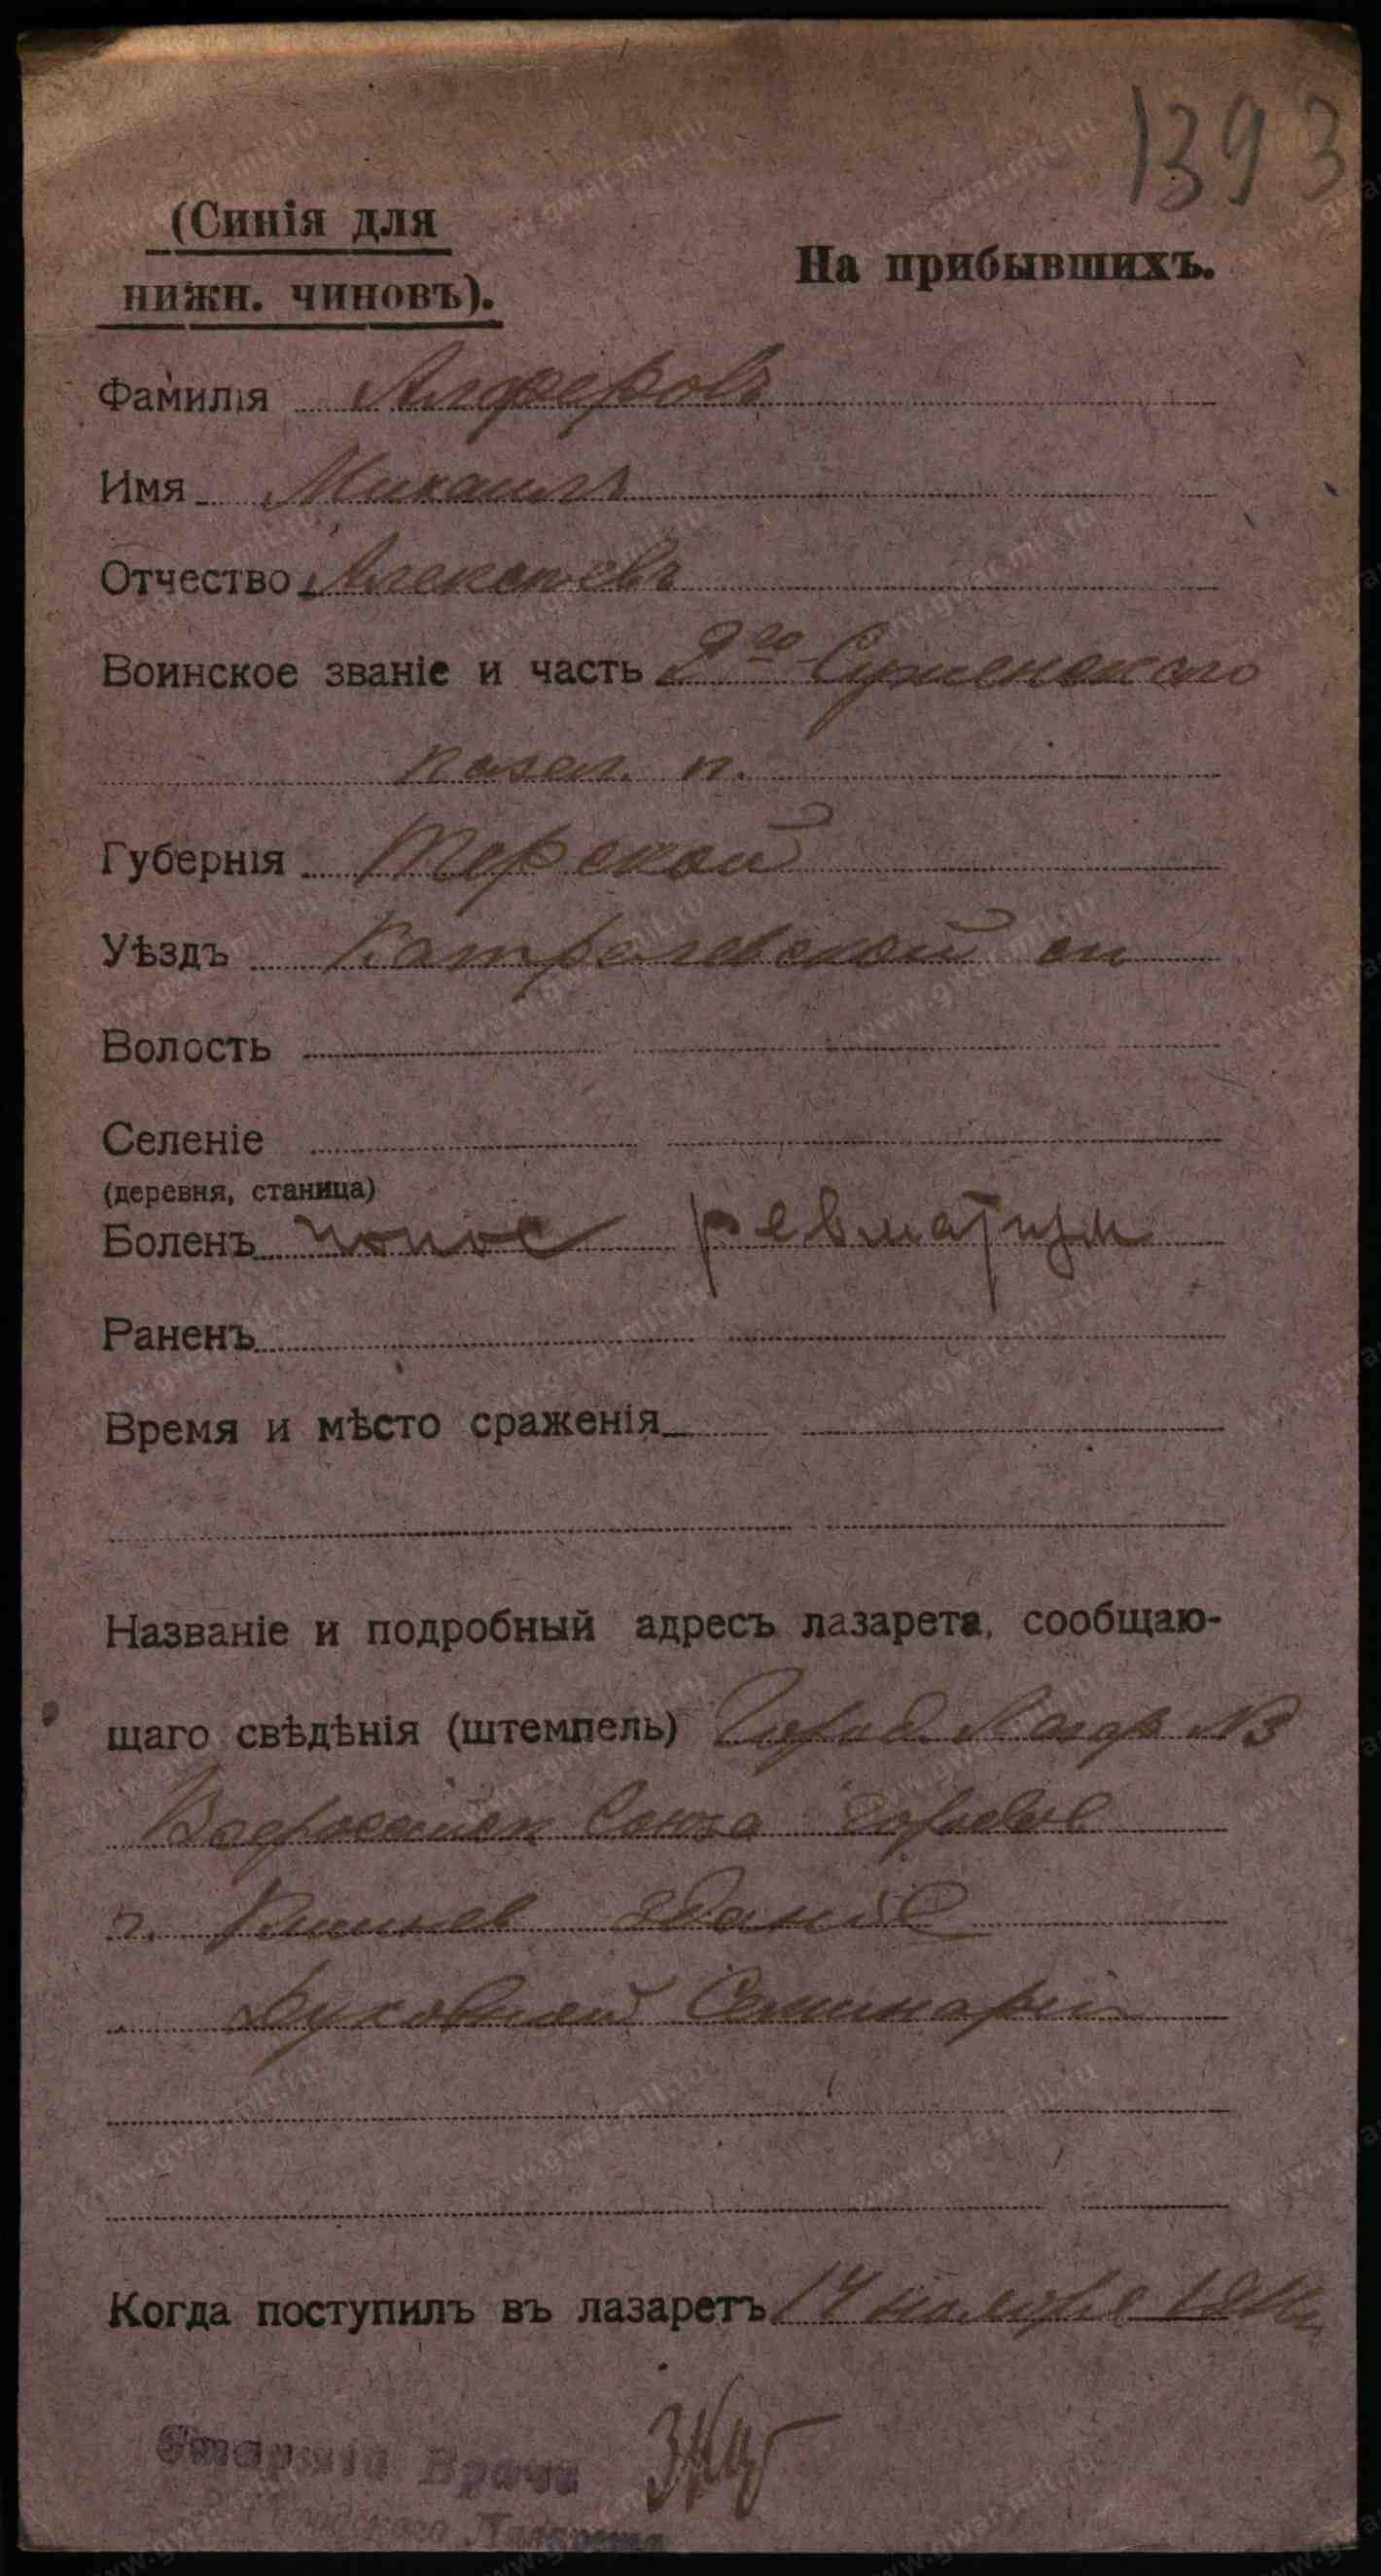 1393
(Синія для
нижн. чиновъ).
На прибывшихъ.
Фамилія Алферовъ
Имя Михаилъ
Отчество Алексѣевъ
Воинское званіе и часть 2го Сунженскаго
казач. п.
Губернія Терской
Уѣздъ ст
Волость
Селеніе
(деревня, станица)
Боленъ понос ревматизм
Раненъ
Время и мѣсто сраженія
Названіе и подробный адресъ лазарета, сообщаю-
щаго свѣдѣнія (штемпель) Город. Лазар №3
Всероссійск Союза городов
г. Кишинев здание
Духовной Семинаріи
Когда поступилъ въ лазаретъ 14 ноября
Старшій Врачъ
Городского Лазарета